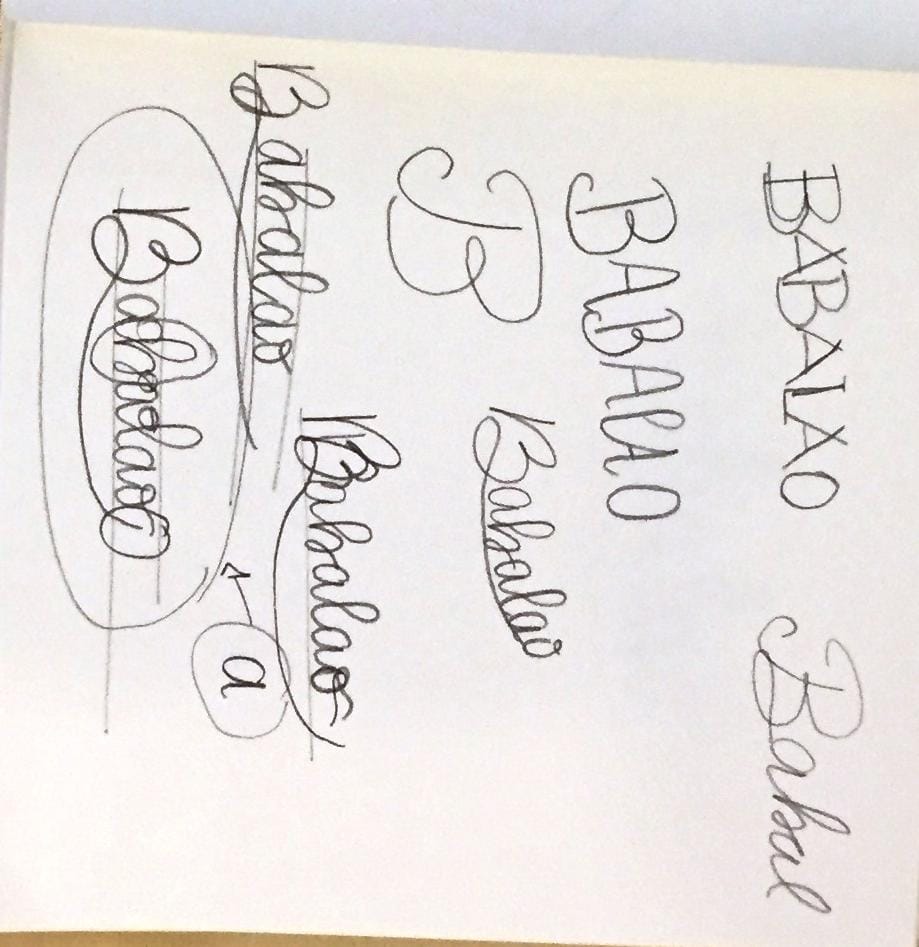 BABALAO Babal
BABALAO
B Babalao
Babalao Babalao
a
Babalao